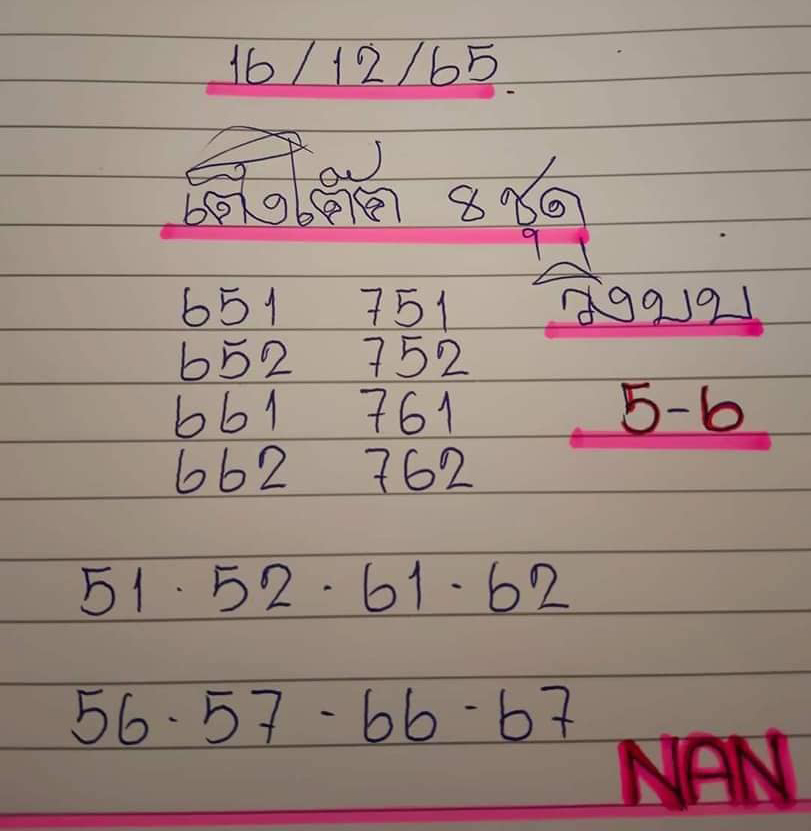 16/12/65
เต็งโต๊ด 8 ชุด
651 751 วิ่งบน
652 752
661 761 5-6
662 762
51 · 52 · 61 · 62
56 · 57 - 66 - 67
NAN